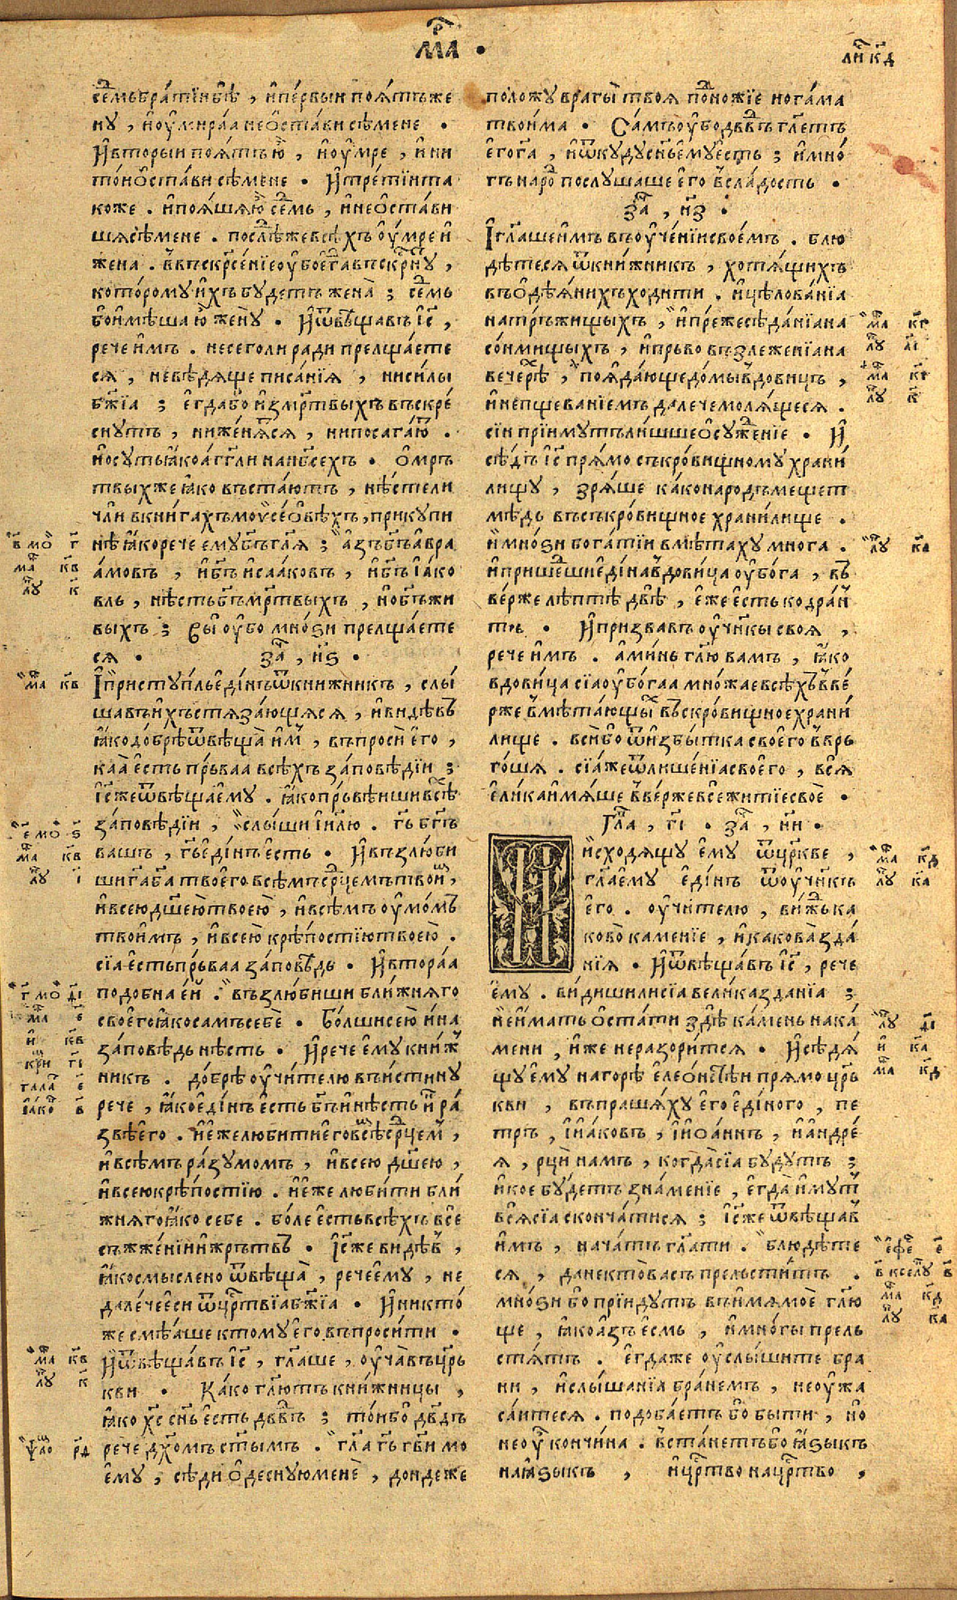 мрⷦ҇а .
лиⷭ҇ к҃д
се́мь бра́тїи бѣ̀ , и҆ пе́рвыи поя́тъ же
ну̀ , и҆ ѹ҆мира́а не ѡ҆ста́ви сѣ́мене .
И҆ вторы́и поя́тъ ю҆̀ , и҆ ѹ҆́мре , и҆ ни
то́и ѡ҆ста́ви сѣ́мене . И҆ тре́тїи та
коже . и҆ поя́шя ю҆̀ се́дмь , и҆ не ѡ҆ста́ви
шя сѣ́мене . послѣ́жⷣе всѣ́хъ ѹ҆́мре и҆
жена̀ . в҆ въскр҃се́нїе ѹ҆́бо є҆гда̀ въскрⷭ҇ну ,
кото́рому и҆́хъ бу́детъ жена̀ ; се́дмь
бо и҆мѣ́ша ю҆̀ жену̀ . И҆ ѿвѣща́въ і҆с҃ ,
рече и҆́мъ . не сего́ ли ра́ди прелща́ете
ся , не вѣ́дяще писа́нїя , ни си́лы
бж҃їа ; є҆гда́ бо и҆з ме́ртвыхъ въскре́
снутъ , ни же́нятся , ни посага́ютъ .
но су́ть ꙗ҆́ко а҆́гг҃ли на нб҃сехъ . Ѡ҆ мр҃ъ
твы́х же ꙗ҆́ко въста́ютъ , нѣ́сте ли
чли́ в кни́гахъ моѵсе́ѡвѣхъ , при купи
нѣ̀ ꙗ҆́ко рече є҆му̀ бг҃ъ гл҃я ; а҆́зъ бг҃ъ а҆вра
а́мовъ , и҆ бг҃ъ и҆саа́ковъ , и҆ бг҃ъ і҆а́ко
вль , нѣ́сть бг҃ъ ме́ртвыхъ , но бг҃ъ жи
вы́хъ ; вы̀ ѹ҆́бо мно́ѕи прелща́ете
ся . за⁠ⷱ҇ , н҃ѕ .
І҆ присту́пль є҆ди́нъ ѿ кни́жникъ , слы́
шавъ и҆́хъ стяза́ющяся , и҆ ви́дѣвъ
ꙗ҆́ко до́брѣ ѿвѣща̀ и҆́мъ , въпросѝ є҆го̀ ,
ка́а є҆́сть пръ́ваа всѣ́хъ за́повѣдїи ;
і҆с҃ же ѿвѣща̀ є҆му̀ . ꙗ҆́ко пръ́вѣиши всѣ́х
за́повѣдїи , слы́ши і҆и҃лю . гь҃ бг҃ъ
ва́шъ , гь҃ є҆ди́нъ є҆́сть . И҆ възлю́би
ши га҃ ба҃ твоего̀ всѣ́мъ ср҃цемъ твои́мъ ,
и҆ все́ю дш҃е́ю твое́ю , и҆ всѣ́мъ ѹ҆мо́мъ
твои́мъ , и҆ все́ю крѣ́постїю твое́ю .
сїа̀ є҆́сть пръ́ваа за́повѣдь . И҆ втора́а
подо́бна є҆́й . възлю́биши бли́жняго
своего̀ ꙗ҆́ко са́мъ себѐ . Бо́лши сею̀ и҆на̀
за́повѣдь нѣ́сть . И҆ рече є҆му̀ кни́ж
никъ . до́брѣ ѹ҆чи́телю въи́стину
рече , ꙗ҆́ко є҆ди́нъ є҆́сть бг҃ъ и҆ нѣ́сть и҆́нъ ра́
звѣ є҆го̀ . и҆ є҆́же люби́ти є҆го̀ всѣ́мъ ср҃цемъ ,
и҆ всѣ́мъ ра́зумомъ , и҆ все́ю дш҃е́ю ,
и҆ все́ю крѣ́постїю . и҆ є҆́же люби́ти бли́
жняго ꙗ҆́ко себе . бо́ле є҆́сть всѣ́хъ все
съжже́нїи и҆ же́ртвъ . І҆с҃ же ви́дѣвъ ,
ꙗ҆́ко смы́слено ѿвѣща̀ , рече є҆му̀ , не
дале́че є҆сѝ ѿ цр҃твїа бж҃їа . И҆ никто́
же смѣ́аше ктому̀ є҆го̀ въпроси́ти .
И҆ ѿвѣща́въ і҆с҃ , гл҃аше , ѹ҆ча̀ въ цр҃ъ
кви . Ка́ко гл҃ютъ кни́жницы ,
ꙗ҆́ко хс҃ сн҃ъ є҆́сть дв҃въ ; то́и бо дв҃дъ
рече дх҃омъ ст҃ы́мъ . гл҃а гь҃ гв҃и мо
є҆му̀ , сѣдѝ ѡ҆десну́ю менѐ , до́ндеже
положу̀ врагы̀ твоя̀ подно́жїе нога́ма
твои́ма . Са́мъ ѹ҆́бо дв҃дъ гл҃етъ
є҆го̀ га҃ , и҆ ѿку́ду сн҃ъ є҆му̀ є҆́сть ; и҆ мно́
гъ наро́дъ послу́шаше є҆го̀ в сла́дость .
за⁠ⷱ҇ , н҃з .
І҆ гл҃аше и҆́мъ въ ѹ҆че́нїи свое́мъ . блю
дѣ́теся ѿ кни́жникъ , хотя́щихъ
въ ѡ҆дѣ́янихъ ходи́ти . и҆ цѣлова́нїа
на тръ́жищыхъ , и҆ пре́жесѣда́нїа на
со́нмищыхъ , и҆ пръ́во възлеже́нїа на
вече́рѣ , поя́дающе до́мы вдови́цъ ,
и҆ непщева́нїемъ дале́че моля́щеся .
сїѝ прїи́мутъ ли́шше ѡ҆сужде́нїе . И҆
сѣ́дъ і҆с҃ пря́мо съкро́вищному храни́
лищу , зря́ше ка́ко наро́дъ ме́щет
мѣ́дь въ съкро́вищное храни́лище .
И҆ мно́ѕи бога́тїи вмѣта́ху мно́га .
и҆ прише́дши є҆ди́на вдови́ца ѹ҆бо́га , въ
ве́рже ле́птѣ двѣ̀ , є҆́же є҆́сть кодра́н
тъ . И҆ призва́въ ѹ҆ч҃нкы своя̀ ,
рече и҆́мъ . а҆ми́нь гл҃ю ва́мъ , ꙗ҆́ко
вдови́ца сїа̀ ѹ҆бо́гаа мно́жае всѣ́хъ вве́
рже вмѣта́ющых въ скро́вищное храни́
лище . вси́ бо ѿ и҆збы́тка своего̀ ввръ
го́шя . сїа́ же ѿ лише́нїа своего̀ , вся̀
є҆ли́ка и҆мя́ше вве́рже всѐ житїѐ своѐ .
Гла⁠ⷡ҇ , г҃і . за⁠ⷱ҇ , н҃и .
И҆ исходя́щу є҆му̀ ѿ цр҃кве ,
гл҃а є҆му̀ є҆ди́нъ ѿ ѹ҆ч҃нкъ
є҆го̀ . ѹ҆чи́телю , ви́жⷣь ка
ково̀ ка́менїе , и҆ какова̀ зда́
нїя . И҆ ѿвѣща́въ і҆с҃ , рече
є҆му̀ . ви́диши ли сїа̀ вели́ка зда́нїа ;
не и҆́мать ѡ҆ста́ти здѣ̀ ка́мень на ка́
мени , и҆́же не разори́тся . И҆ сѣдя́
щу є҆му̀ на горѣ̀ є҆лео́нстѣи пря́мо цр҃ъ
кви , въпраша́ху є҆го̀ є҆ди́ного , пе
тръ , і҆ и҆а́ковъ , і҆ і҆ѡа́ннъ , и҆ а҆ндре́
я , рцѝ на́мъ , когда̀ сїа̀ бу́дутъ ;
и҆ кое бу́детъ зна́менїе , є҆гда̀ и҆́мут
вся̀ сїа̀ сконча́тися ; І҆с҃ же ѿвѣща́в
и҆́мъ , нача́тъ гл҃ати . блюдѣ́те
ся , да не кто̀ ва́съ прельсти́тъ .
мно́ѕи бо прїи́дутъ въ и҆́мя моѐ гл҃ю
ще , ꙗ҆́ко а҆́зъ є҆́смь , и҆ мно́гы прель
стя́тъ . є҆гда́ же ѹ҆слы́шите бра
ни , и҆ слы́шанїа бра́немъ , не ѹ҆жа
са́итеся . подоба́етъ бо бы́ти , но
не ѹ҆̀ кончи́на . въста́нетъ бо ꙗ҆зы́къ
на ꙗ҆зы́къ , и҆ цр҃тво на цр҃тво ,